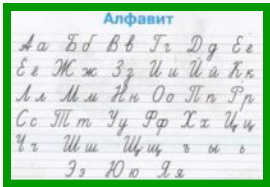 Алфавит
Аа Бб Вв Гг Дд Ее
Ёё Жж Зз Ии Йй Кк
Лл Мм Нн Оо Пп Рр
Сс Тт Уу Фф Хх Цц
Чч Шш Щщ ъ ы ь
Ээ Юю Яя